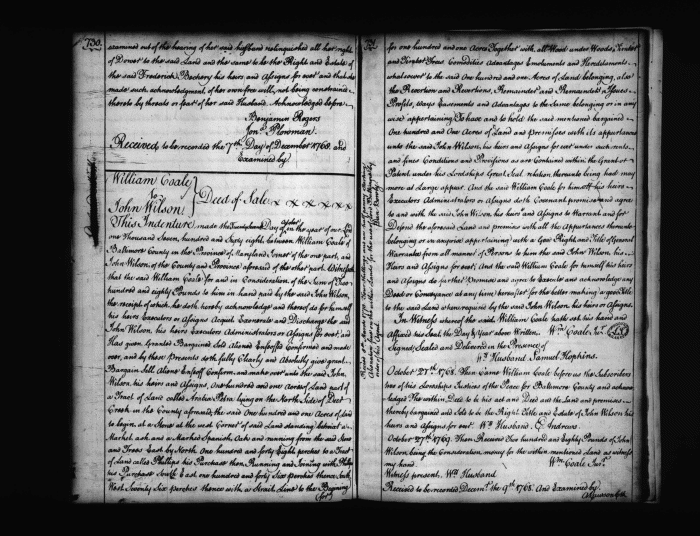 730.
examined out of the hearing of her said husband relinquished all her right
of Dower to the said Land and the same to be the Right and Estate of
the said Frederick his heirs and Assigns for ever and that she
made such acknowledgment of her own free will, not being constrained
thereto by threats or fear of her said Husband. Acknowledged before
Benjamin Rogers
Jon. Plowman
Received, to be recorded the 7th Day of December 1768. and
Examined by
William Coale
to
John Wilson
Deed of Sale
This Indenture made the Day of October in the year of our Lord
one Thousand Seven, hundred and Sixty eight, between William Coale of
Baltimore County in the Province of Maryland of the one part, and
John Wilson, of the County and Province aforesaid of the other part. Witnesseth
that the said William Coale for and in Consideration of the Sum of Two
hundred and eighty Pounds to him in hand paid by the said John Wilson,
the receipt of which he doth hereby acknowledge and thereof do for himself
his heirs Executors or Assigns Acquit Exonerate and Discharge the said
John Wilson, his heirs Executors Administrators or Assigns for ever, and
Has given Granted Bargained Sold Aliened Enfeoffed Confirmed and made
over, and by these Presents doth fully Clearly and Absolutely give grant
Bargain Sell Alien Enfeoff Confirm and make over unto the said John
Wilson, his heirs and Assigns, One hundred and one Acres of Land part of
a Tract of Land called Arabia Petra lying on the North Side of Deer
Creek in the County aforesaid, the said One hundred and one Acres of land
to begin at a Stone at the west Corner of said Land standing between a
Market ash and a Marked Spanish Oak and running from the said Stone
and Trees East by North One hundred and forty eight perches to a Tract
of Land called Phillips his Purchase then Running and Joining with Phillips
his Purchase South East one hundred and forty Six perches thence South
West Twenty Six perches thence with a Strait Line to the Beginning
(for)
731
for one hundred and one Acres Together with all Wood under Woods, Timber
and Timber Trees Comodities Advantages Emoluments and Hereditaments
whatsoever to the said One hundred and one Acres of Land belonging, also
the Reversion and Reversions, Remainder and Remainders Issues
Profits, ways Easements and Advantages to the Same belonging or in any
wise appertaining To have and to hold the said mentioned bargained
One hundred and one Acres of Land and Premises with its appurtenances
unto the said John Wilson, his heirs and Assigns for ever under such rents
and fines Conditions and Provisions as are Contained within the Grant or
Patent under his Lordships Great Seal relation thereunto being had may
more at Large appear. And the said William Coale for himself his heirs
Executors Administrators or Assigns doth Covenant promise and agree
to and with the said John Wilson, his heirs and Assigns to Warrant and for
Defend the aforesaid Land and premises with all the Appurtenances thereunto
belonging or in anywise appertaining with a Good Right, and Title of General
Warrantee from all manner of Persons to him the said John Wilson, his
Heirs and Assigns for ever. And the said William Coale for himself his heirs
and Assigns do further Promises and agree to Execute and acknowledge any
Deed or Conveyance at any time hereafter for the better making a good Title
to the said Land when required by the said John Wilson, his heirs or Assigns.
In Witness whereof the said William Coale hath set his hand and
Affixed his Seal the Day & Year above Written. Wm Coale Junr
Signed Sealed and Delivered in the Presence of
Wm Husband Samuel Hopkins.
October 27th 1768. Then Came William Coale before us the Subscribers
two of his Lordships Justices of the Peace for Baltimore County and acknow
ledged the within Deed to be his act and Deed and the Land and premises
thereby bargained and Sold to be the Right Title and Estate of John Wilson his
heirs and Assigns for ever. Wm Husband. E. Andrews.
October 27th 1768. Then Received Two hundred and Eighty Pounds of John
Wilson being the Consideration money for the within mentioned Land as witness
my hand. Wm Coale Junr
Witness present, Wm Husband
Received to be recorded Decemr the 9th 1768. And Examined by